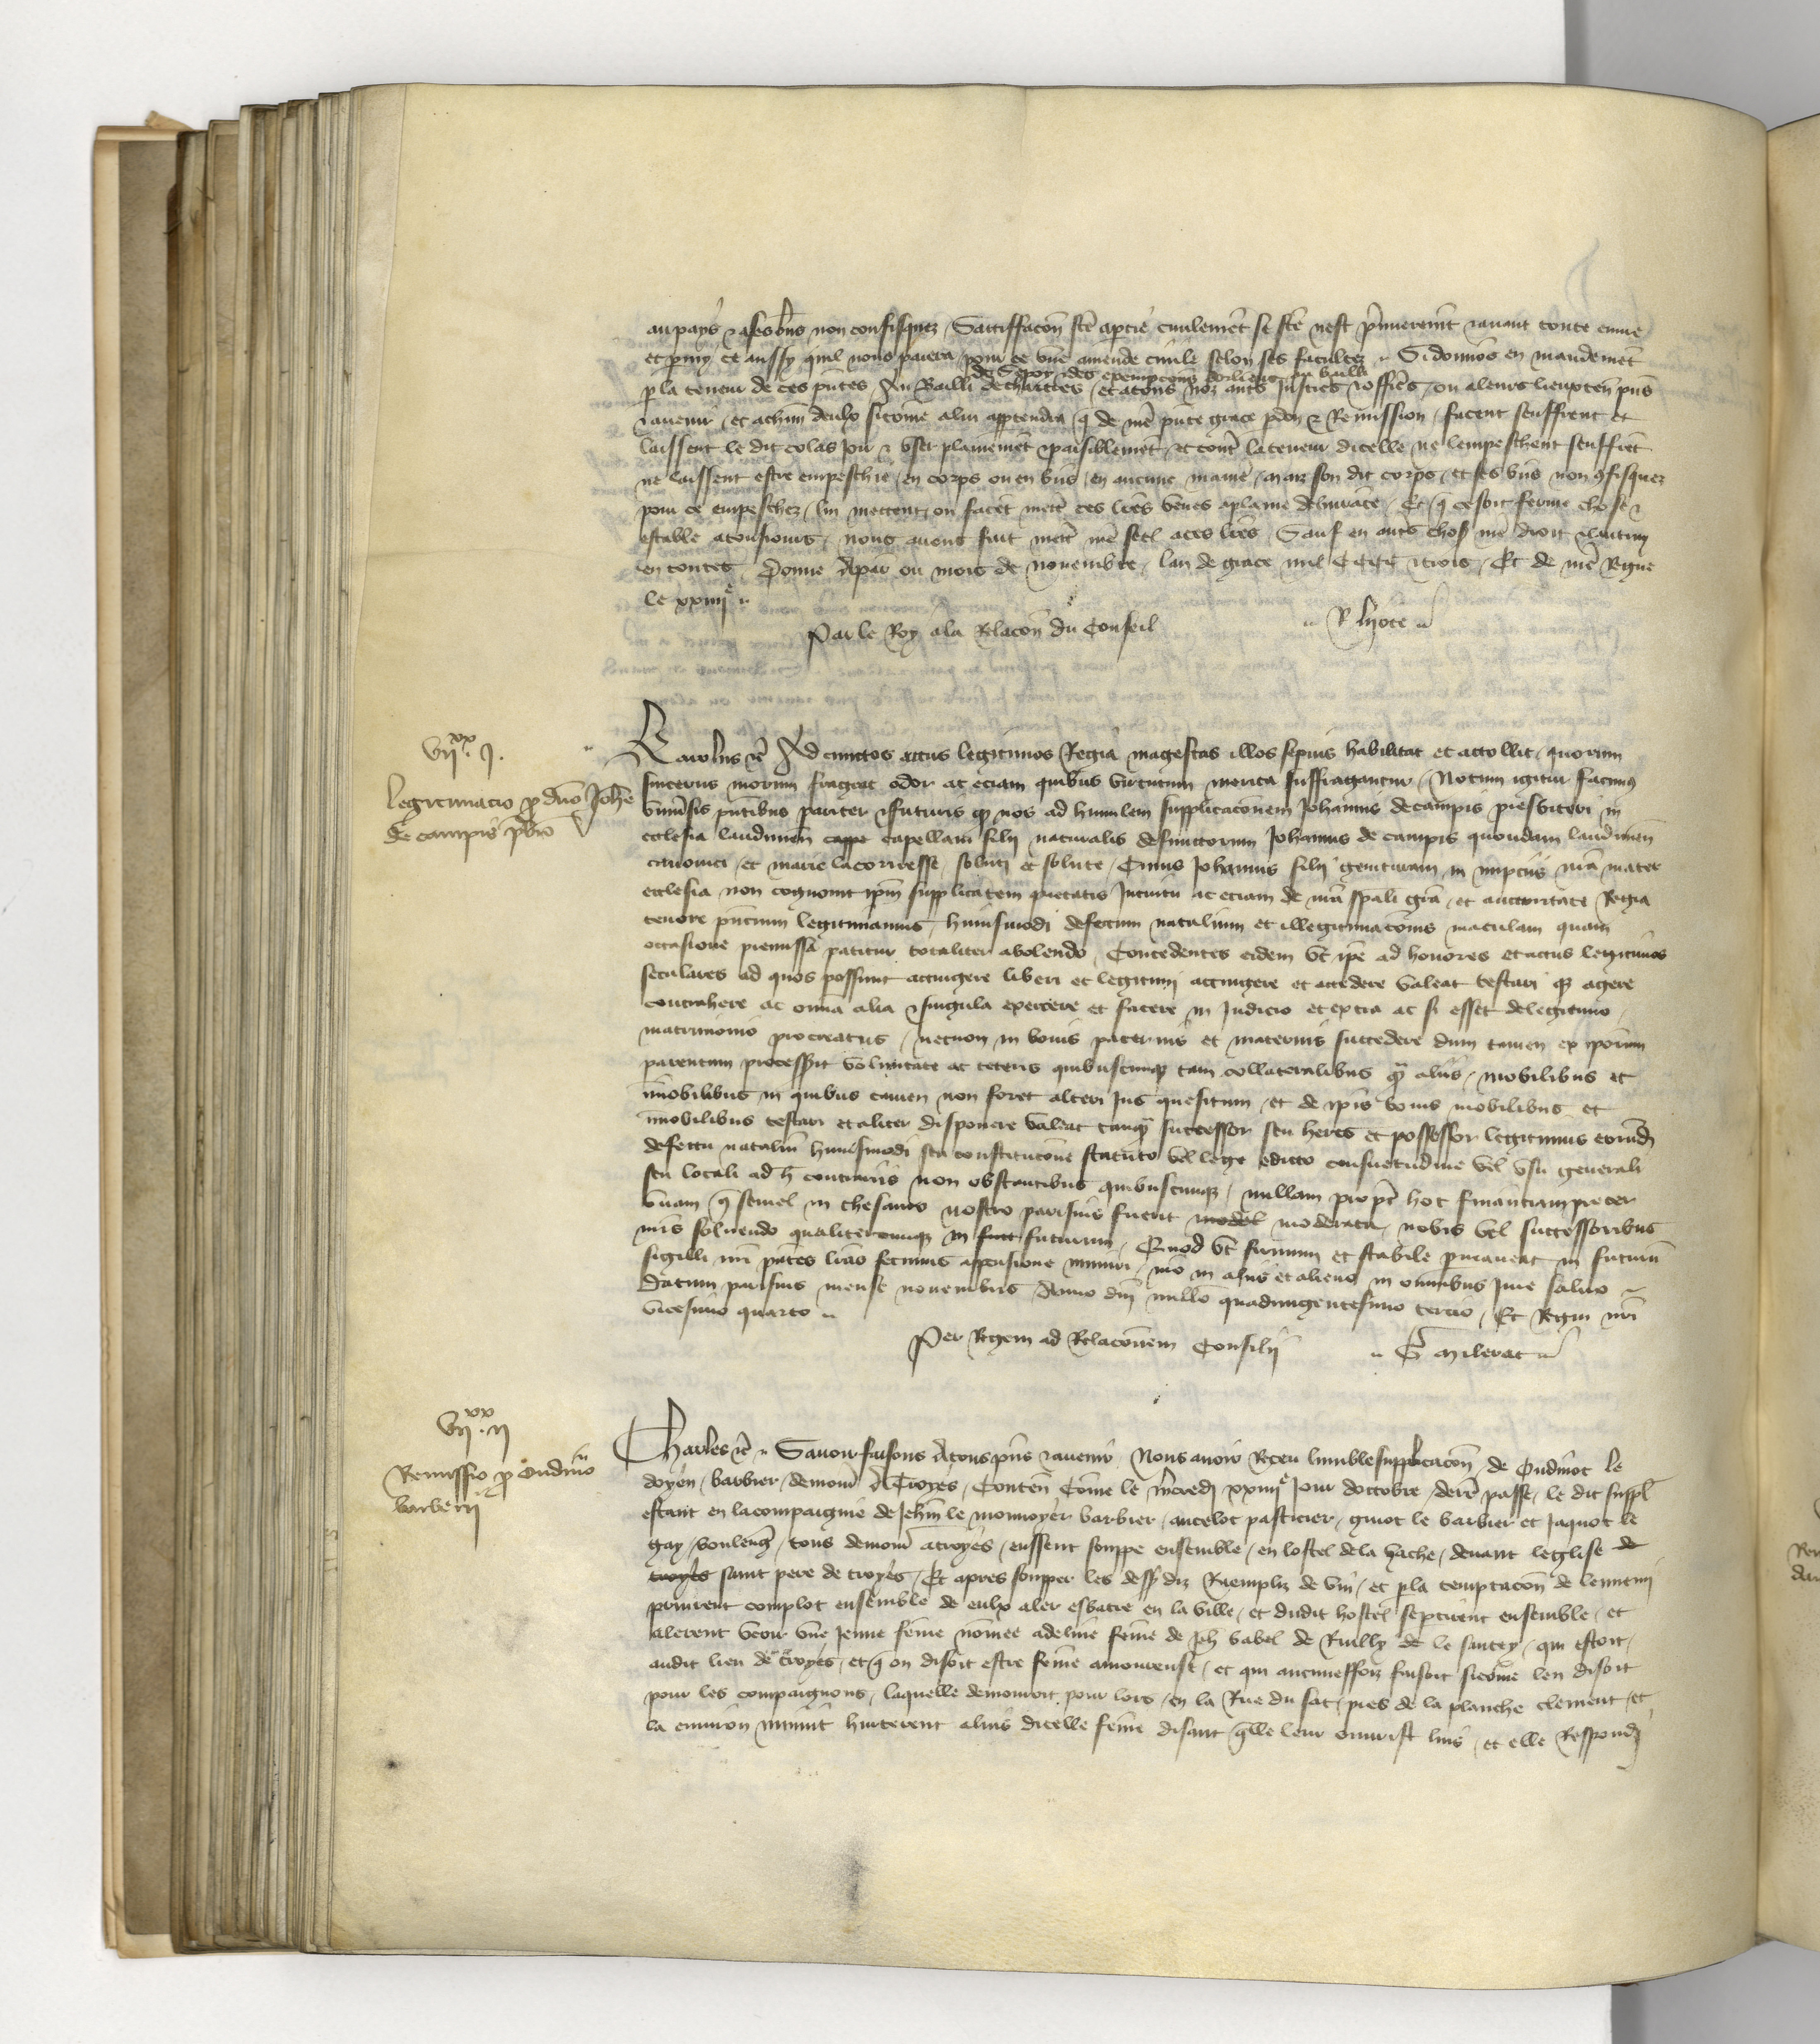 au pays & a ses bns non confisquez, Sattiffacon fcte a ptie civilemet se fcte nest p̄mierement & avant toute euvre
et pmy ce aussy quil nous paiera pour ce une amende civile selon ses facultez .. Si donnos en mandemet
de Sepoy & des exempcons dorliens au baill
p la teneur de ces pntes Au Bailli de chartres, et a tous noz auts Justics & offics, ou a leurs lieuxten pns
& avenir, et a chun deulx si come a lui apptendra q de nre pnte grace pdon & Remission, facent seuffrent et
laissent le dit colas Joir & user plainemet & paisiblemet, et contr la teneur dicelle ne lempeschent seuffret
ne laissent estre empeschie, en corps ou en bns, en aucune manie, mais son dit corps, et ses bns non 9fisquez
pour ce empeschez, lui mettent, ou facet mettr ces lres veues a plaine delivrace, Et q ce soit ferme chose &
estable a tousjours, nous avons fait mettr nre scel a ces lres, Sauf en auts choses nre droit & lautruy
en toutes, Donne A par ou mois de novembre, lan de grace mil CCCC & trois, Et de nre Regne
le xxiiii e ..
Par le Roy a la Relacon du Conseil .. P lyote ..
vii xx i.
Legitimacio p dno Johe
de campis pbro
Karolus &c Ad cunctos actus legitimos Regia magestas illos sepius habilitat et attollit, quorum
sincerus morum fragrat odor ac eciam quibus virtutum merita suffragantur, Notum igitur facimus
univsis pntibus pariter & futuris q nos ad humilem supplicacionem Johannis de campis presbiteri in
ecclesia laudunen cappe capellani filii naturalis defunctorum Johannis de campis quondam laudunen
canonici, et marie la corivesse, soluti et solute, Cuius Johannis filii genituram in nupciis nra mater
ecclesia non cognovit ipm supplicatem pietatis Intuitu ac eciam de nra spali gra, et auctoritate Regia
tenore pncium legitimamus, huiusmodi defectum natalium et illegitimacionis maculam quam
occasione premissa patitur totaliter abolendo, Concedentes eidem ut ipe ad honores et actus legitimos
seculares ad quos possunt attingere liberi et legitimi attingere et accedere valeat testari q agere
contrahere ac omnia alia & singula exercere et facere in Judicio et extra ac si esset de legitimo
matrimonio procreatus, necnon in bonis paternis et maternis succedere dum tamen ex ipsorum
parentum processit voluntate ac ceteris quibuscumq tam collateralibus q aliis, mobilibus et
imobilibus in quibus tamen non foret alteri Jus quesitum, et de ipis bonis mobilibus et
imobilibus testari et aliter disponere valeat tanq successor seu heres et possessor legitimus eorumd
defectu nataliu huiusmodi seu constitucione statuto vel lege edicto consuetudine vel usu generali
seu locali ad h contrariis non obstantibus quibuscumq, nullam propt hoc financiam preter
unam q semel in thesauro nostro parisius fuerit model moderata, nobis vel successoribus
nris solvendo qualitercumq in fut futurum, Quod ut firmum et stabile pmaneat in futuru
sigilli nri pntes lras fecimus appensione muniri, nro in aliis et alieno in omnibus Jure salvo ~
Datum parisius mense novembris Anno dni millo quadringentesimo tercio, Et Regni nri
vicesimo quarto ..
Per Regem ad Relacionem Consilii .. G milerat ..
vii xx . ii
Remissio p oudino
barberii
Charles &c .. Savoir faisons A tous pns & avenir, Nous avoir Receu lumble supplicacon de Oudinot le
doyen, barbier, demour A Troyes, Conten Come le mcredi xxiiii e Jour doctobre, derr passe, le dit suppl
estant en la compaignie de Jehin le monnoyer barbier, ancelot pasticier, guiot le barbier et Jaquot le
gay, boulengr, tous demour a troyes, eussent souppe ensemble, en lostel de la hache, devant leglise de
troyes saint pere de troyes, Et apres soupper les dess diz Raempliz de vin, et p la temptacon de lennemi
prinrent complot ensemble de eulx aler esbatre en la ville, et dudit hostel se ptirent ensemble, et
alerent veoir une Jeune feme nomee adeline feme de Jeh babel de Ruilly de le sautey, qui estoit,
audit lieu de troyes, et q on disoit estre feme amoureuse, et qui aucuneffoiz faisoit sicome len disoit
pour les compaignons, laquelle demouroit pour lors, en la Rue du sac, pres de la planche clement, et
la environ mynuit hurterent a luis dicelle feme disant qlle leur ouvrist luis, et elle Respondi